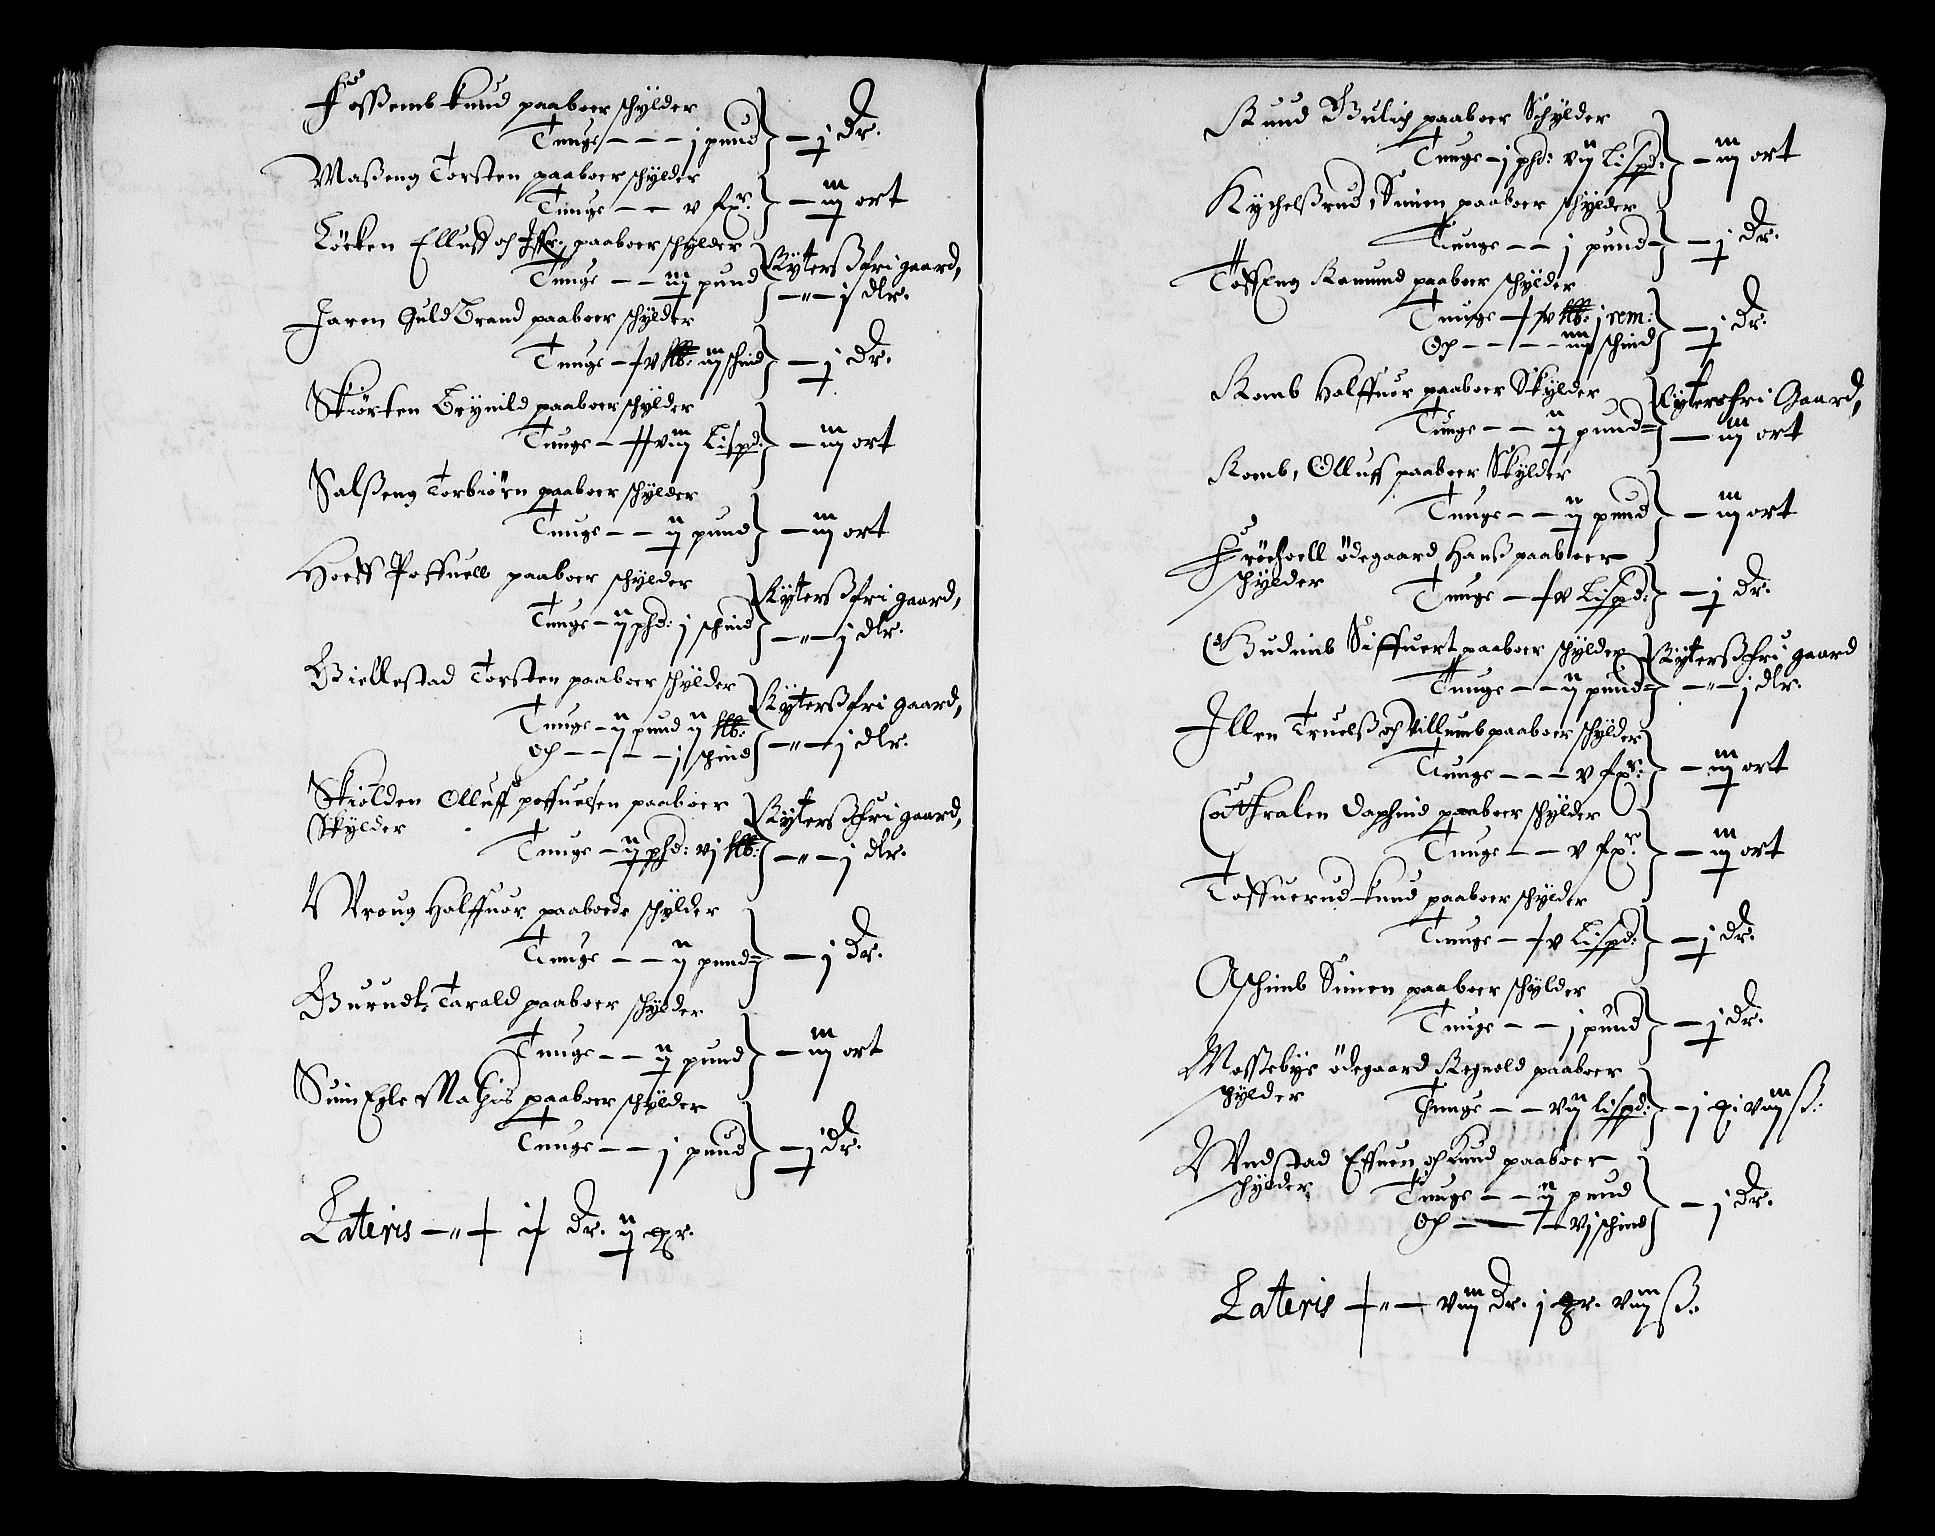 Fossemb knud paaboer schylder
Tunge - - - j pund } - j Dr.
Masseng Torsten paaboer schylder
Tunge - - v fxr. } - iij ort
Löcken Elluff och Iffr: paaboer schylder
Tunge - - iij pund } Rytterss fri gaard,
- " - j dlr.
Jaren Guldbrand paaboer schylder
Tunge - ½ v klb: iij schind } - j Dr.
Skiörten Brynild paaboer schylder
Tunge - viij Lispd: } - iij ort
Salsseng Torbiörn paaboer schylder
Tunge - - ij pund } - iij ort
Hoeff Poffuell paaboer schylder
Tunge - ij phd: j schind } Rytterss fri gaard,
- " - j dlr.
Giellestad Torsten paaboer schylder
Tunge - ij pund ij klb: } Rytterss fri gaard,
Och - - - - j schind } - " - j dlr.
Skiölden Olluff poffuelsen paaboer
Skylder
Tunge - ij phd: vj klb: } Rytterss fri gaard,
- " - j dlr.
Wroug Halffuor paaboede schylder
Tunge - - ij pund } - j Dr.
Burudt, Tarald paaboer schylder
Tunge - - ij pund } - iij ort
Suin Egle Mathis paaboer schylder
Tunge - - j pund } - j Dr.
Lateris - " - Dr. ij qr.
Knud Gulich paaboer Schylder
Tunge - j phd: vij Lispd: } - iij ort
Kychelssrud, Simen paaboer schylder
Tunge - - j pund } - j Dr.
Toffeng Romund paaboer schylder
Tunge - ½ v klb: j rem:
Och - - - - iiij schind } - j Dr.
Romb Halffuor paaboer Skylder
Tunge - - ij pund } Ryttersfri Gaard,
- iij ort
Romb, Olluff paaboer Skylder
Tunge - - ij pund } - iij ort
Fröshoell ödegaard Hanss paaboer
schylder
Tunge - ½ v Lispd: } - j Dr.
Gudimb Siffuert paaboer schylder
Tunge - - ij pund } Rytterss fri gaard
- " - j dlr.
Illen Truelss och Villumb paaboer schylder
Tunge - - - v fxr: } - iij ort
Cathralen Daphind paaboer schylder
Tunge - - v fxr. } - iij ort
Toffuerud knud paaboer schylder
Tunge - ½ v Lispd: } - j Dr.
Aschimb Simen paaboer schylder
Tunge - - j pund } - j Dr.
Mossebye ödegaard Regnold paaboer
schylder
Tunge - - vij lispd: } - j qr viij ß.
Wndstad Effuen och Knud paaboer
schylder
Tunge - - ij pund
Och - - vj schind } - j Dr.
Lateris - " - viij Dr. j qr. viij ß.